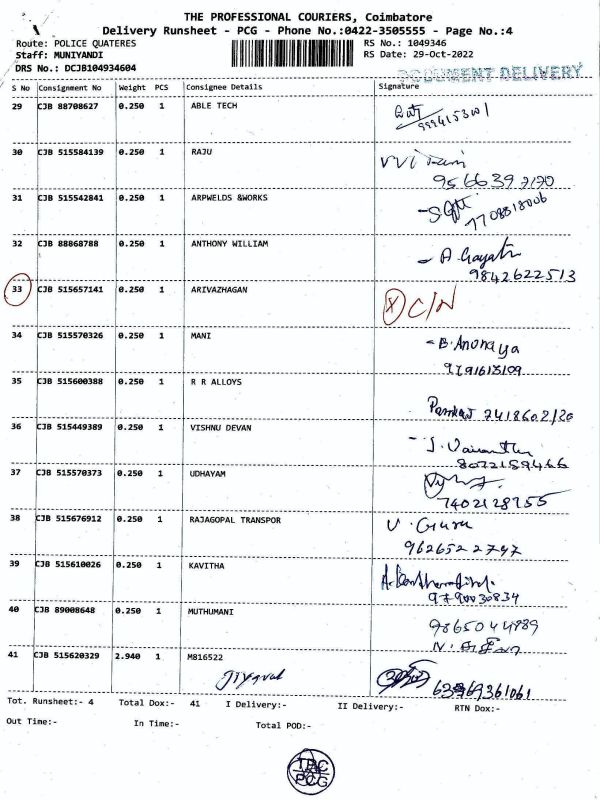 THE PROFESSIONAL COURIERS, Coimbatore
Delivery Runsheet - PCG - Phone No.:0422-3505555 - Page No.:4
Route: POLICE QUATERES RS No.: 1049346
Staff: MUNIYANDI RS Date: 29-Oct-2022
DRS No.: DCJB104934604 DOCUMENT DELIVERY
S No Consignment No Weight PCS Consignee Details Signature
29 CJB 88708627 0.250 1 ABLE TECH
9994153001
30 CJB 515584139 0.250 1 RAJU
31 CJB 515542841 0.250 1 ARPWELDS &WORKS
7708818006
32 CJB 88868788 0.250 1 ANTHONY WILLIAM - A. Gayatri
9842622513
33 CJB 515657141 0.250 1 ARIVAZHAGAN X C/N
34 CJB 515570326 0.250 1 MANI - B. Ananya
9791618109
35 CJB 515600388 0.250 1 R R ALLOYS
36 CJB 515449389 0.250 1 VISHNU DEVAN
8072159466
37 CJB 515570373 0.250 1 UDHAYAM
7402128955
38 CJB 515676912 0.250 1 RAJAGOPAL TRANSPOR V. Guru
9626522747
39 CJB 515610026 0.250 1 KAVITHA
9790030834
40 CJB 89008648 0.250 1 MUTHUMANI 9865044989
41 CJB 515620329 2.940 1 M816522
Tot. Runsheet:- 4 Total Dox:- 41 I Delivery:- II Delivery:- RTN Dox:-
Out Time:- In Time:- Total POD:-
TPC
PCG